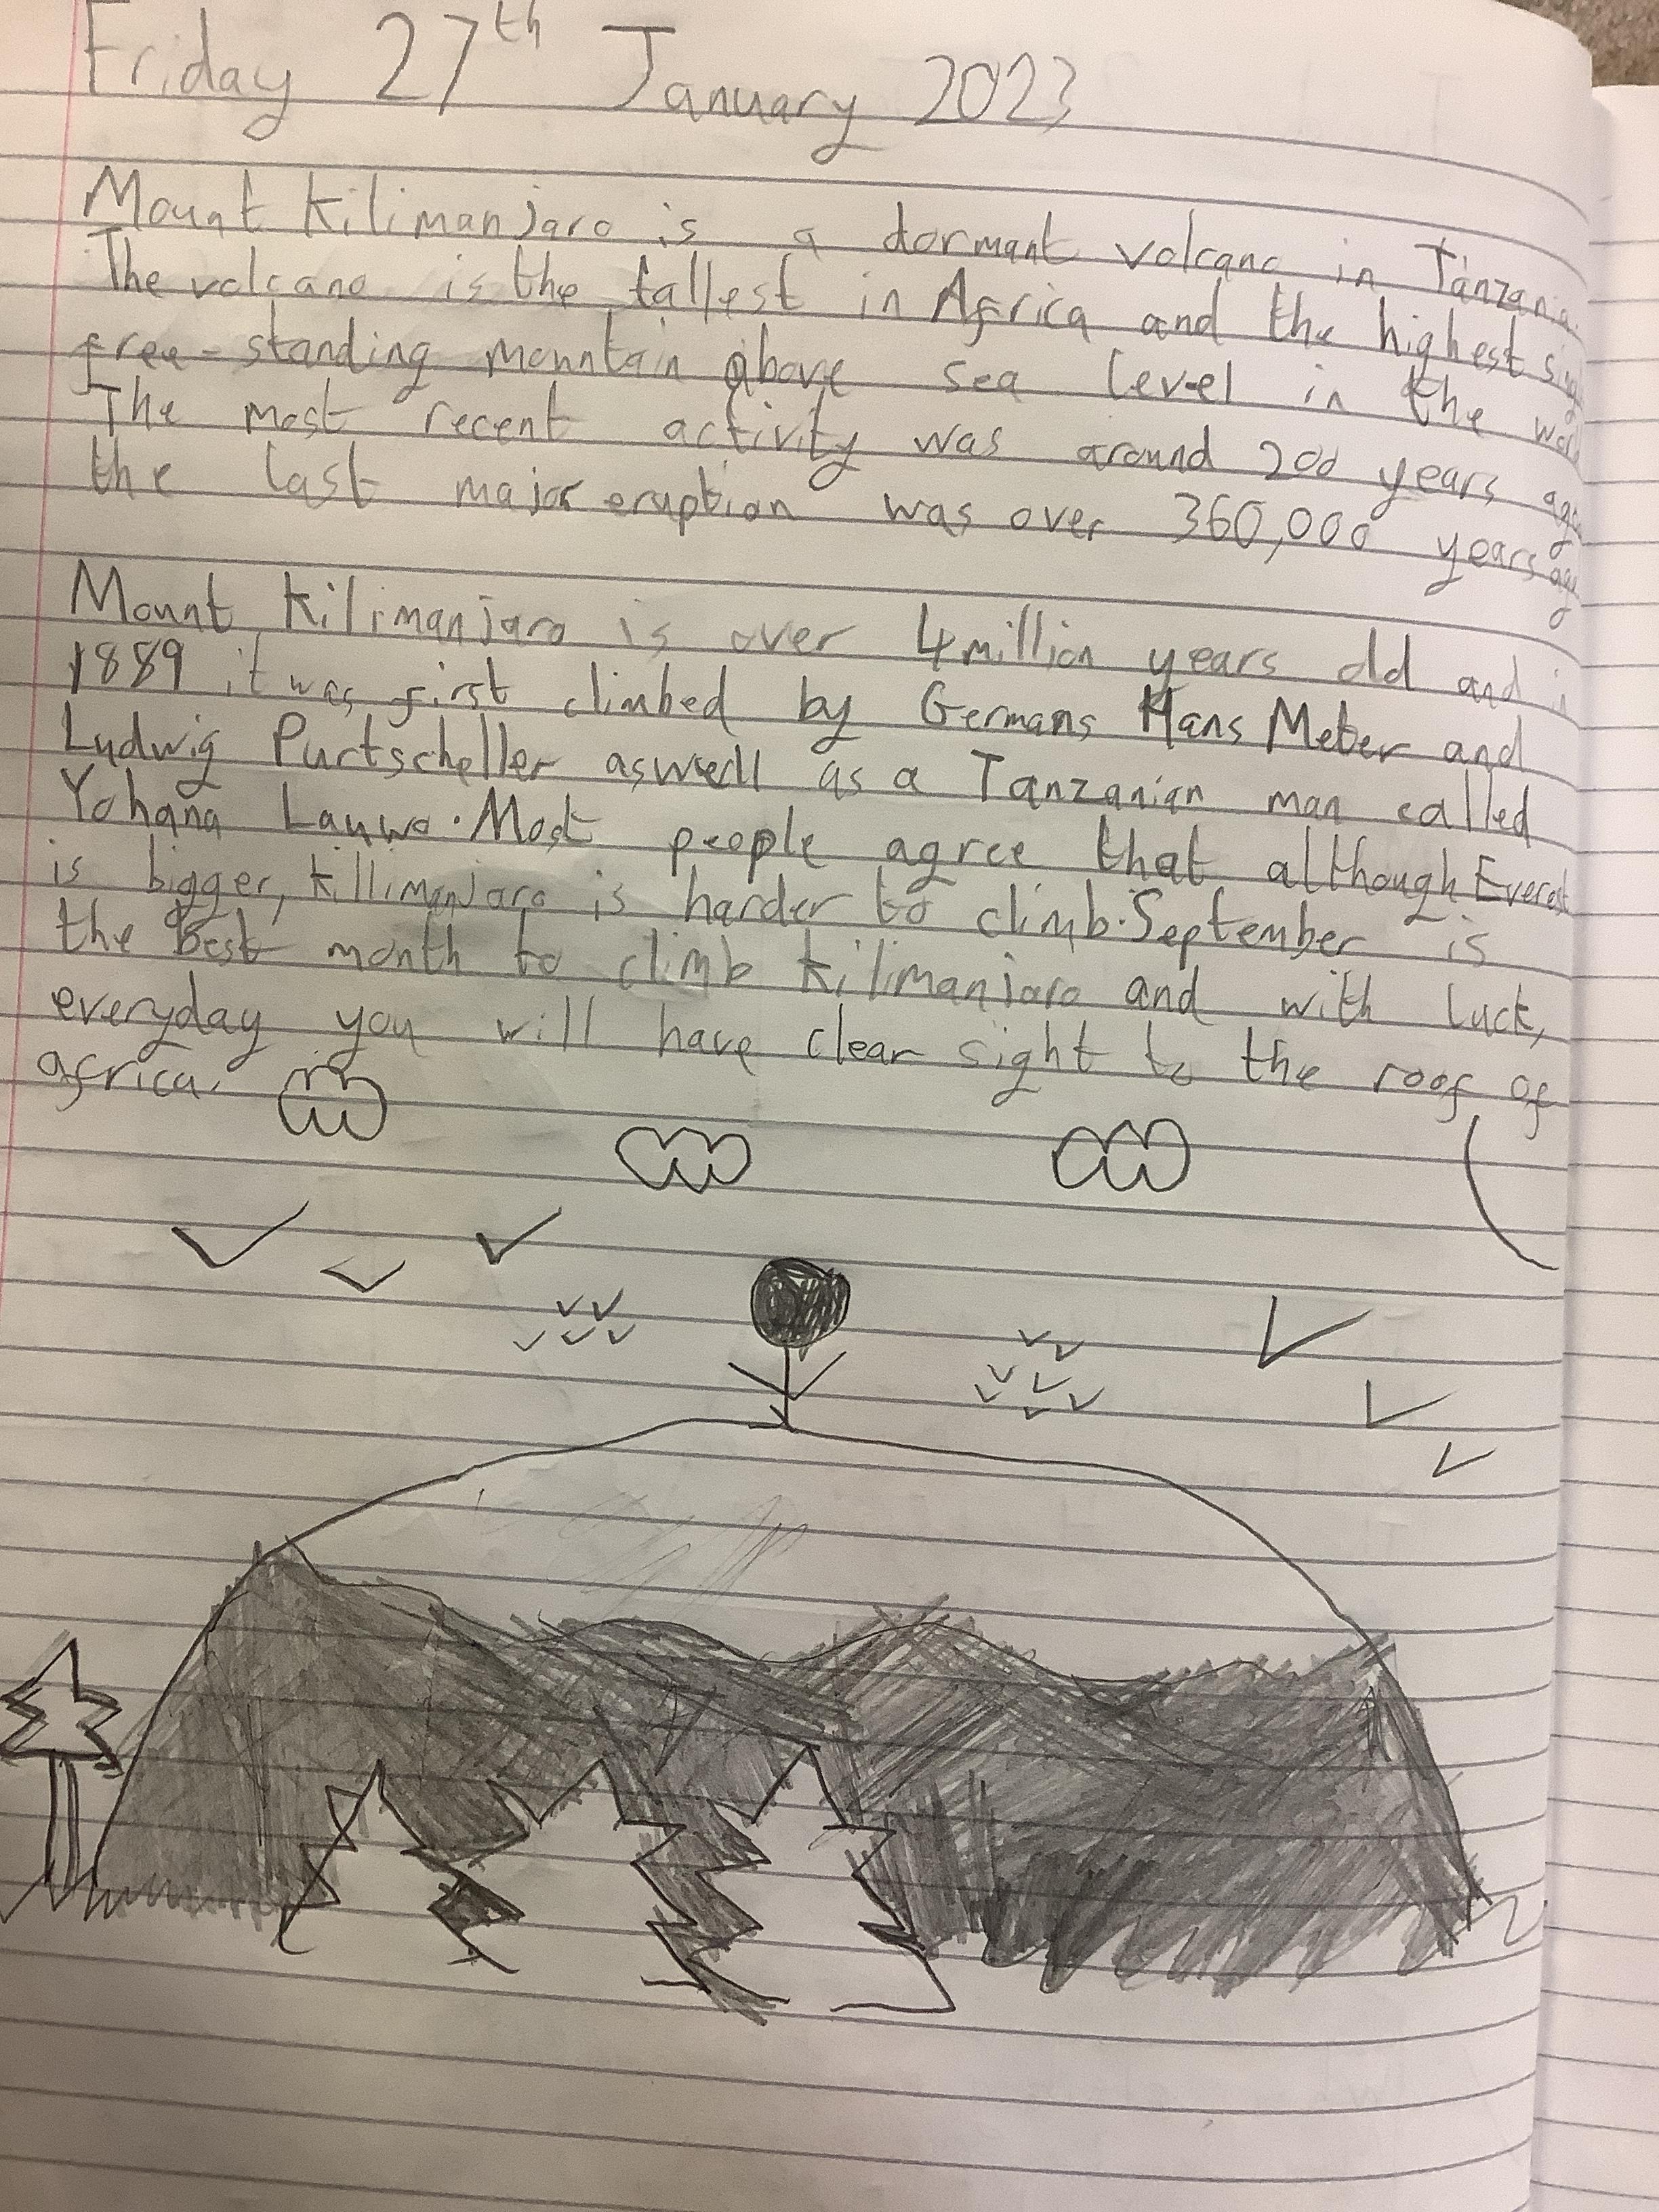 Friday 27th January 2023
Mount Kilimanjaro is a dormant volcano in Tanzania.
The volcano is the tallest in Africa and the highest
free-standing mountain above sea level in the
The most recent activity was around 200 years ago
the last major eruption was over 360,000 years ago
Mount Kilimanjaro is over 4 million years old and in
1889 it was first climbed by Germans Hans Meber and
Ludwig Purtscheller aswell as a Tanzanian man called
Yohana Lauwo. Most people agree that although Everest
is bigger, Killimanjaro is harder to climb. September is
the best month to climb Kilimanjaro and with luck,
everyday you will have clear sight to the roof of
africa.